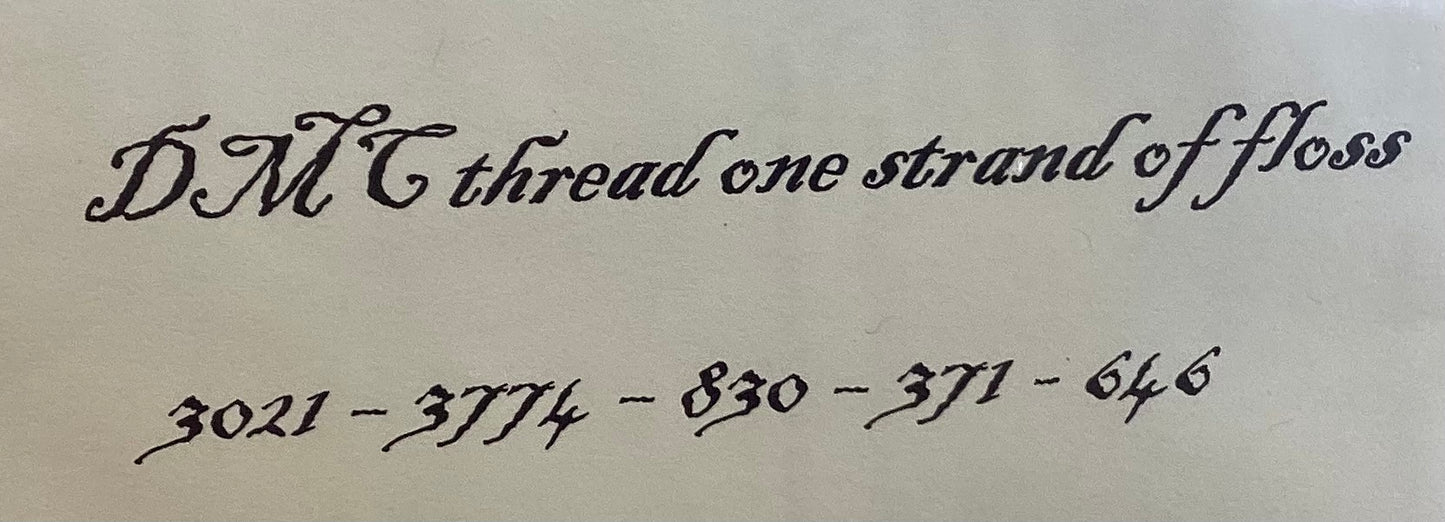 DMC thread one strand of floss
3021 - 3774 - 830 - 371 - 646